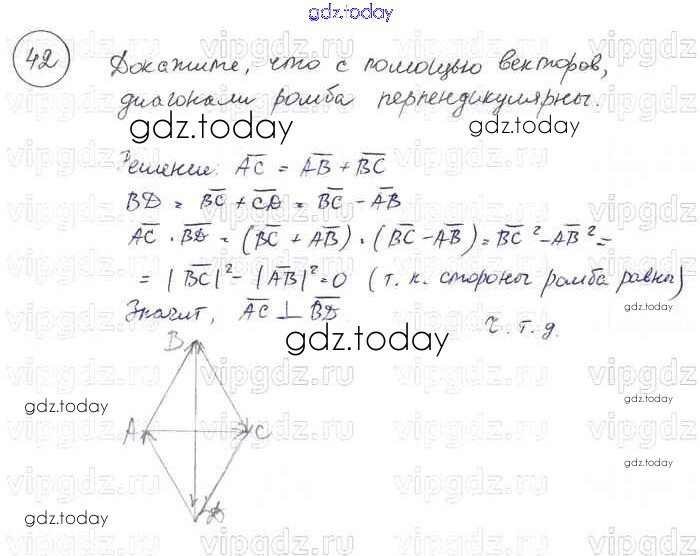 gdz.today
42
Докажите, что с помощью векторов,
диагонали ромба перпендикулярны.
gdz.today
gdz.today
Решение: AC = AB + BC
BD = BC + CD = BC - AB
AC · BD = (BC + AB) · (BC - AB) = BC² - AB² =
= |BC|² - |AB|² = 0 (т. к. стороны ромба равны)
Значит, AC ⊥ BD
ч. т. д.
gdz.today
B
gdz.today
gdz.today
A
C
gdz.today
D
gdz.today
gdz.today
vipgdz.ru